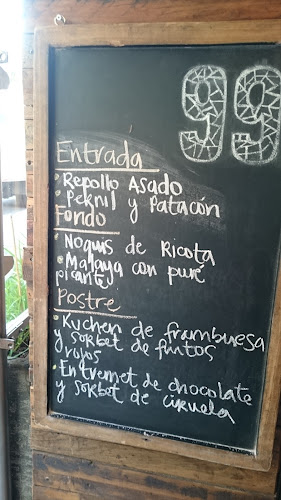 99
Entrada
• Repollo Asado
• Pernil y Patacón
Fondo
• Noquis de Ricota
• Malaya con puré
picante
Postre
• Kuchen de frambuesa
y sorbet de frutos
rojos
• Entremet de chocolate
y sorbet de ciruela